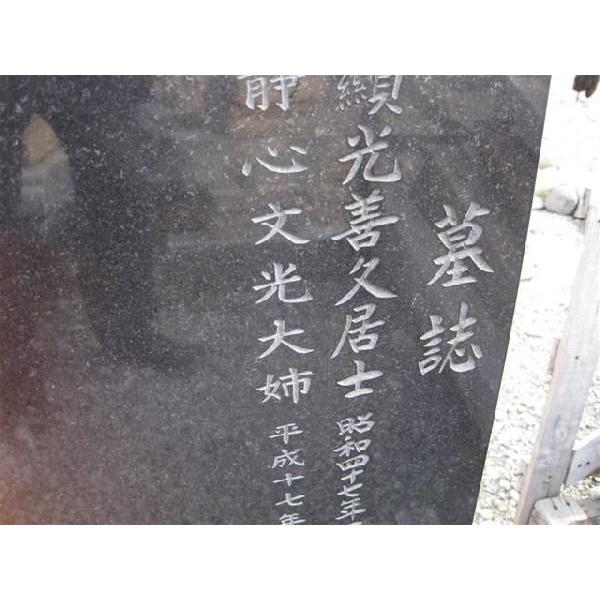 墓誌
顯光善久居士 昭和四十七年
靜心文光大姉 平成十七年